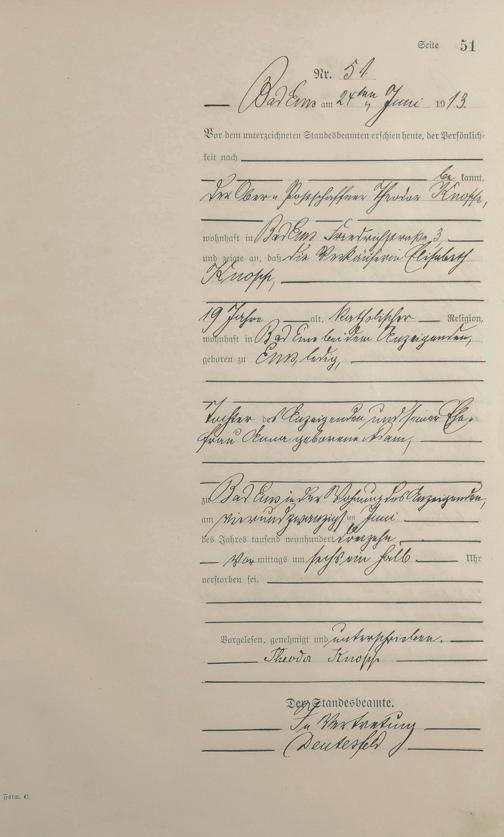 Seite 51
Nr. 51
Bad Ems am 24ten Juni 1913.
Vor dem unterzeichneten Standesbeamten erschien heute, der Persönlich-
keit nach
be kannt,
der Ober-Postschaffner Theodor Knopp,
wohnhaft in Bad Ems Friedrichstraße 3
und zeigte an, daß die Verkäuferin Elisabeth
Knopp,
19 Jahre alt, katholischer Religion,
wohnhaft in Bad Ems bei dem Anzeigenden,
geboren zu Ems, ledig,
Tochter des Anzeigenden, und seiner Ehe-
frau Anna geborene Adam,
zu Bad Ems in der Wohnung des Anzeigenden,
am vierundzwanzigsten Juni
des Jahres tausend neunhundert dreizehn
Vormittags um sechs ein halb Uhr
verstorben sei.
Vorgelesen, genehmigt und unterschrieben.
Theodor Knopp
Der Standesbeamte.
In Vertretung
Form. C.